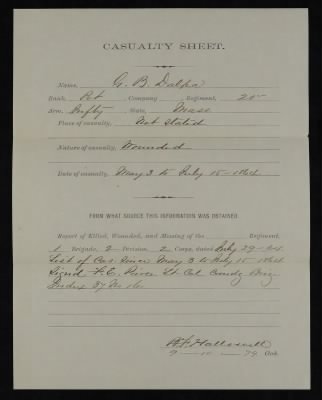 CASUALTY SHEET.
Name, G. B. Dalpa
Rank, Pvt Company, Regiment, 20
Arm, Infty State, Mass
Place of casualty, Not Stated
Nature of casualty, Wounded
Date of casualty, May 3 to July 15-1864
FROM WHAT SOURCE THIS INFORMATION WAS OBTAINED.
Report of Killed, Wounded, and Missing of the Regiment,
1 Brigade, 2 Division, 2 Corps, dated July 29-64
List of Cas. Since May 3 to July 15 1864
Signd F. E. Pierce Lt Col Comdg Brig
Index 37
B F Hallowell
9-10-79 Clerk.